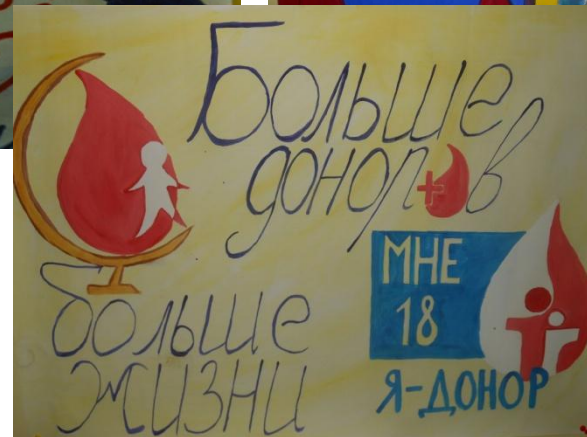 Больше
доноров
больше
жизни
МНЕ
18
Я-ДОНОР